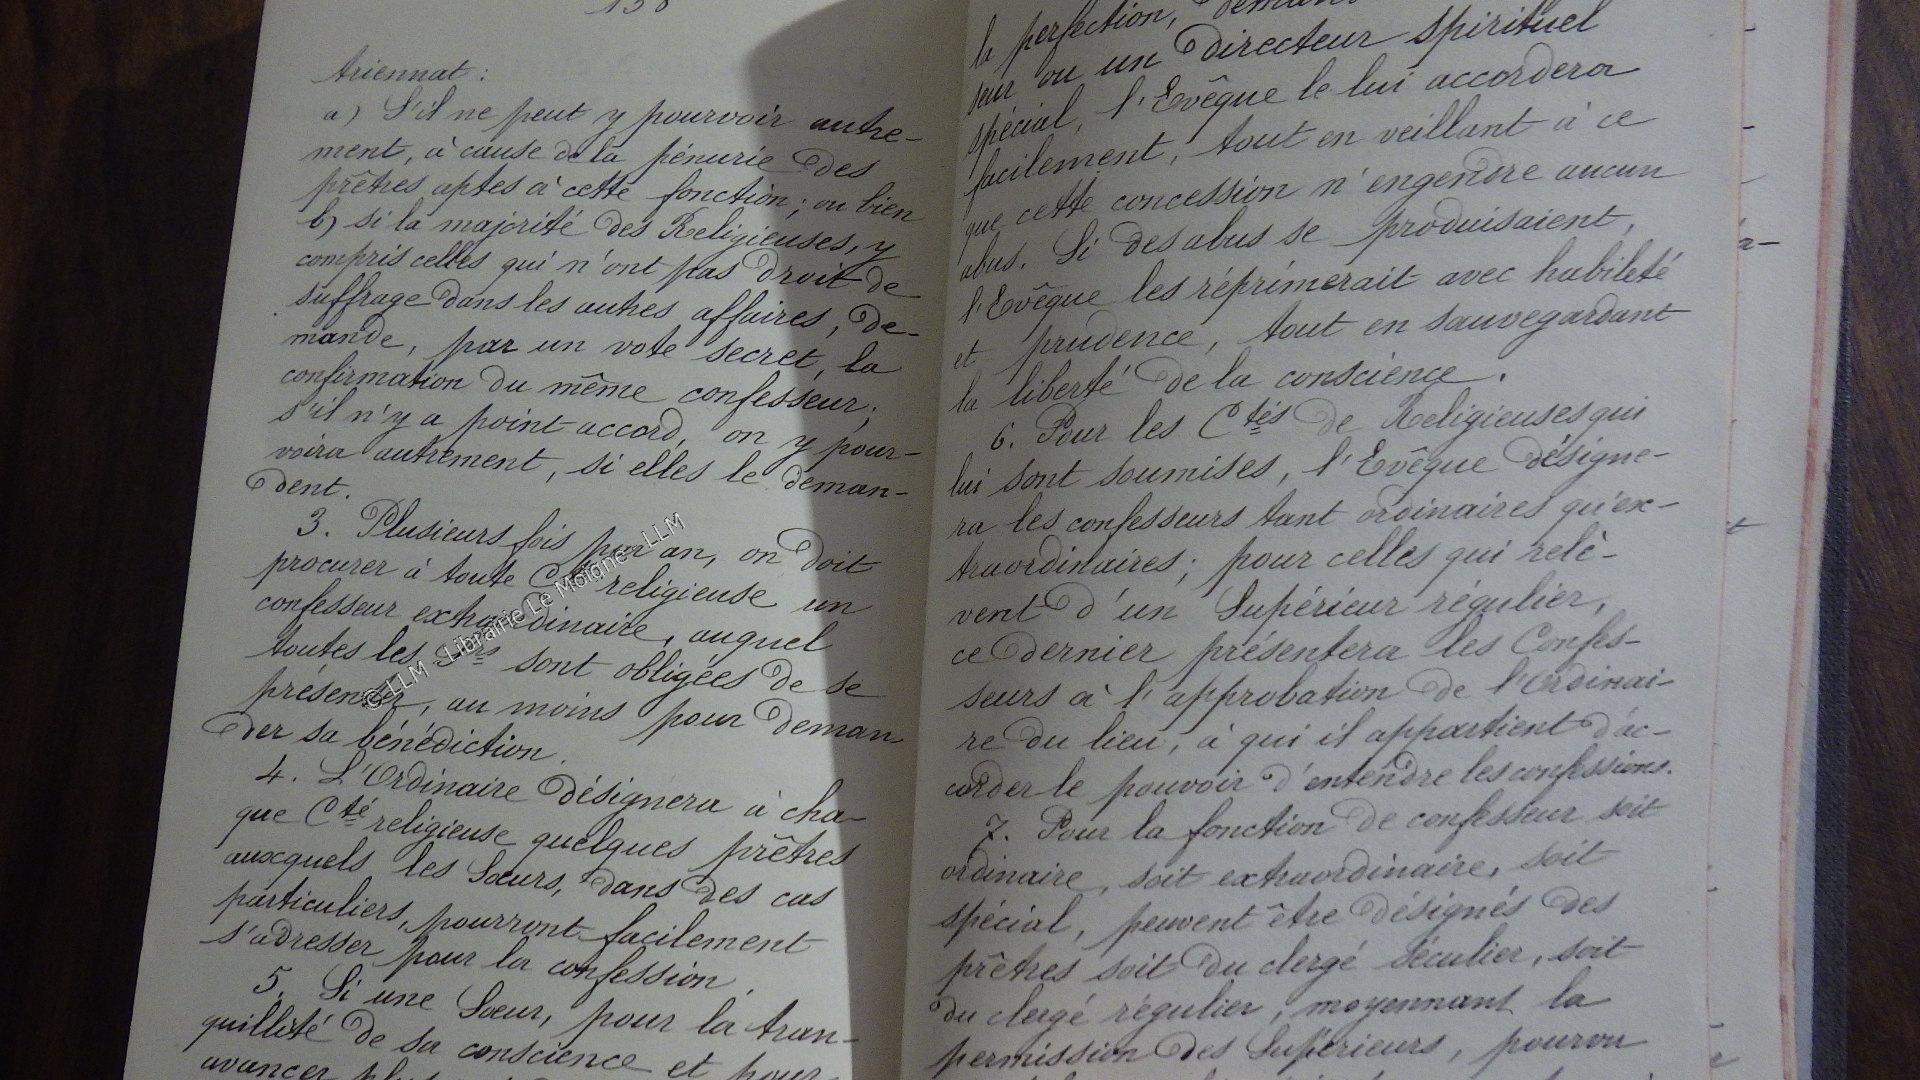 138
triennat :
a) S'il ne peut y pourvoir autre-
ment, à cause de la pénurie des
prêtres aptes à cette fonction; ou bien
b) si la majorité des Religieuses, y
compris celles qui n'ont pas droit de
suffrage dans les autres affaires, de-
mande, par un vote secret, la
confirmation du même confesseur;
s'il n'y a point accord, on y pour-
voira autrement, si elles le deman-
dent.
3. Plusieurs fois par an, on doit
procurer à toute Cté religieuse un
confesseur extraordinaire, auquel
toutes les Srs sont obligées de se
présenter, au moins pour deman-
der sa bénédiction.
4. L'Ordinaire désignera à cha-
que Cté religieuse quelques prêtres
auxquels les Sœurs, dans des cas
particuliers, pourront facilement
s'adresser pour la confession.
5. Si une Sœur, pour la tran-
quillité de sa conscience et pour
avancer plus
la perfection,
seur ou un directeur spirituel
spécial, l'Evêque le lui accordera
facilement, tout en veillant à ce
que cette concession n'engendre aucun
abus. Si des abus se produisaient,
l'Evêque les réprimerait avec habileté
et prudence, tout en sauvegardant
la liberté de la conscience.
6. Pour les Ctés de Religieuses qui
lui sont soumises, l'Evêque désigne-
ra les confesseurs tant ordinaires qu'ex-
traordinaires; pour celles qui relè-
vent d'un Supérieur régulier,
ce dernier présentera les Confes-
seurs à l'approbation de l'Ordinai-
re du lieu, à qui il appartient d'ac-
corder le pouvoir d'entendre les confessions.
7. Pour la fonction de confesseur soit
ordinaire, soit extraordinaire, soit
spécial, peuvent être désignés des
prêtres soit du clergé séculier, soit
du clergé régulier, moyennant la
permission des Supérieurs, pourvu
© LLM - Librairie Le Moigne - LLM